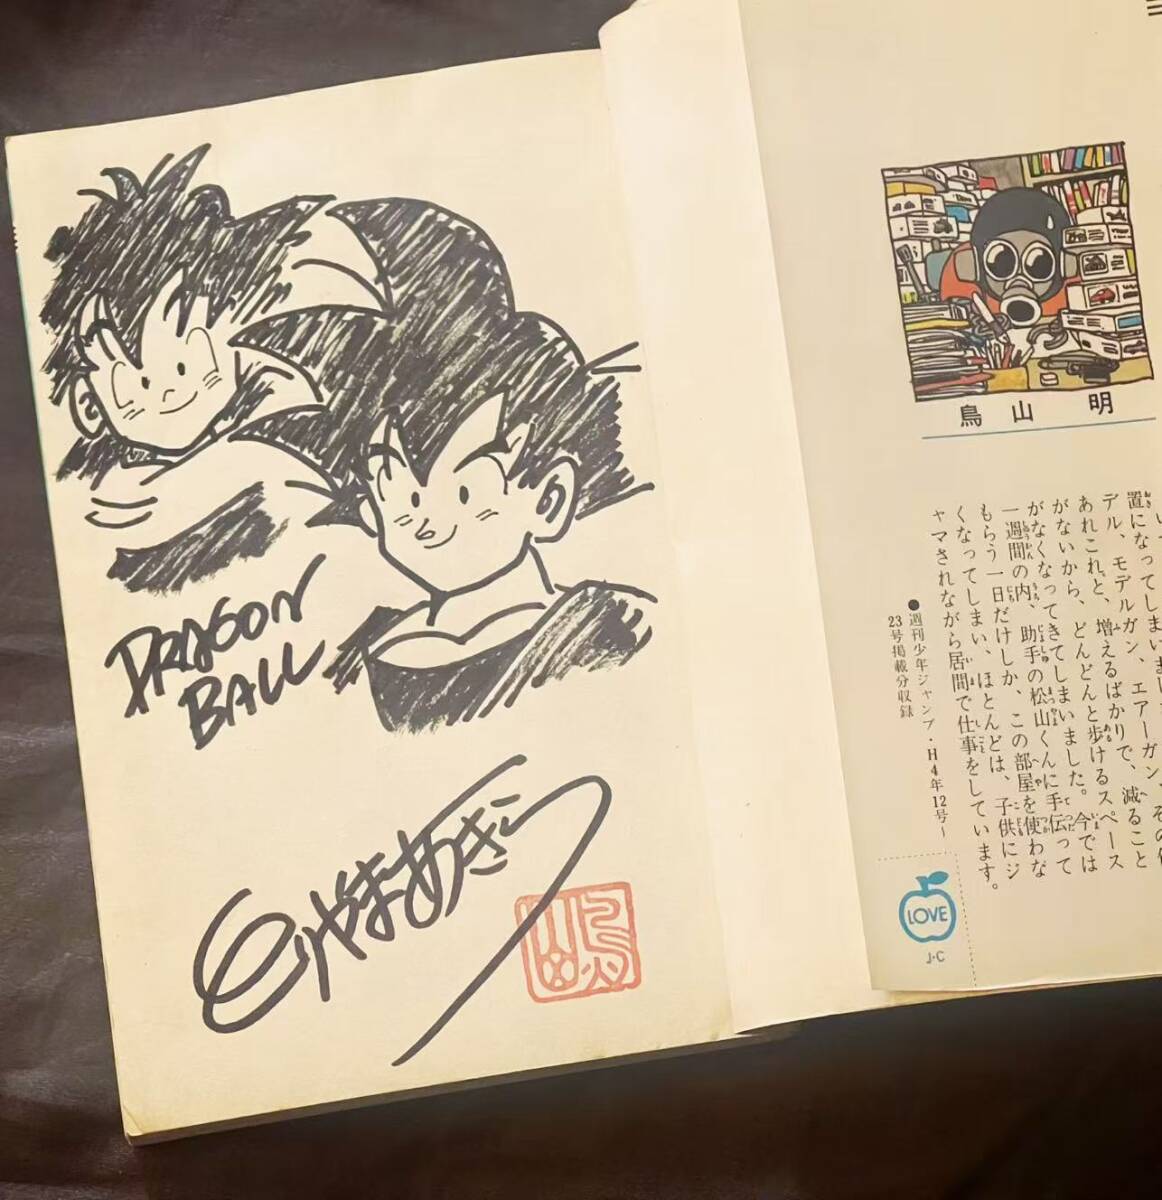 DRAGON
BALL
とりやまあきら
鳥山 明
置になってしまいまし
デル、モデルガン、エアーガン、その他
あれこれと、増えるばかりで、減ること
がないから、どんどんと歩けるスペース
がなくなってきてしまいました。今では
一週間の内、助手の松山くんに手伝って
もらう一日だけしか、この部屋を使わな
くなってしまい、ほとんどは、子供にジ
ャマされながら居間で仕事をしています。
●週刊少年ジャンプ・H4年12号～
23号掲載分収録
LOVE
J・C